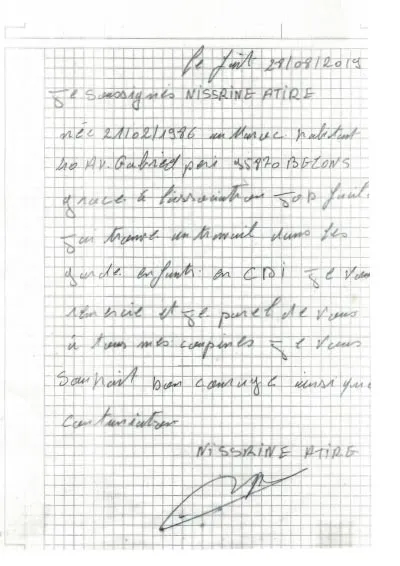 le fait 28/08/2019
Je soussignes NISSRINE ATIRE
née 21/02/1986 au Maroc habitant
40 AV. Gabriel peri 95870 BEZONS
grace à l'association Job
j'ai trouve un travail dans les
garde enfants en CDI Je vous
remercie et je parel de vous
à tous mes coupines Je vous
Souhait bon courage ainsi que
NISSRINE ATIRE